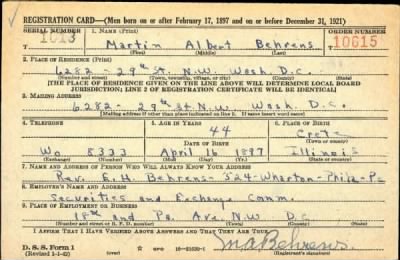 REGISTRATION CARD—(Men born on or after February 17, 1897 and on or before December 31, 1921)
SERIAL NUMBER 1. NAME (Print) ORDER NUMBER
1013 Martin Albert Behrens 10615
(First) (Middle) (Last)
2. PLACE OF RESIDENCE (Print)
6282 - 29th St. N.W. Wash D.C.
(Number and street) (Town, township, village, or city) (County) (State)
[THE PLACE OF RESIDENCE GIVEN ON THE LINE ABOVE WILL DETERMINE LOCAL BOARD
JURISDICTION; LINE 2 OF REGISTRATION CERTIFICATE WILL BE IDENTICAL]
3. MAILING ADDRESS
6282 - 29th St N.W. Wash. D.C.
[Mailing address if other than place indicated on line 2. If same insert word same]
4. TELEPHONE 5. AGE IN YEARS 6. PLACE OF BIRTH
44 Crete
DATE OF BIRTH (Town or county)
Wo 8333 April 16 1897 Illinois
(Exchange) (Number) (Mo.) (Day) (Yr.) (State or country)
7. NAME AND ADDRESS OF PERSON WHO WILL ALWAYS KNOW YOUR ADDRESS
Rev. E.H. Behrens - 324 - Wharton - Phila - Pa
8. EMPLOYER'S NAME AND ADDRESS
Securities and Exchange Comm.
9. PLACE OF EMPLOYMENT OR BUSINESS
18th and Pa. Ave. N.W D C.
(Number and street or R. F. D. number) (Town) (County) (State)
I AFFIRM THAT I HAVE VERIFIED ABOVE ANSWERS AND THAT THEY ARE TRUE.
D. S. S. Form 1
(Revised 1-1-42) (over) 16—21630-1 M A Behrens.